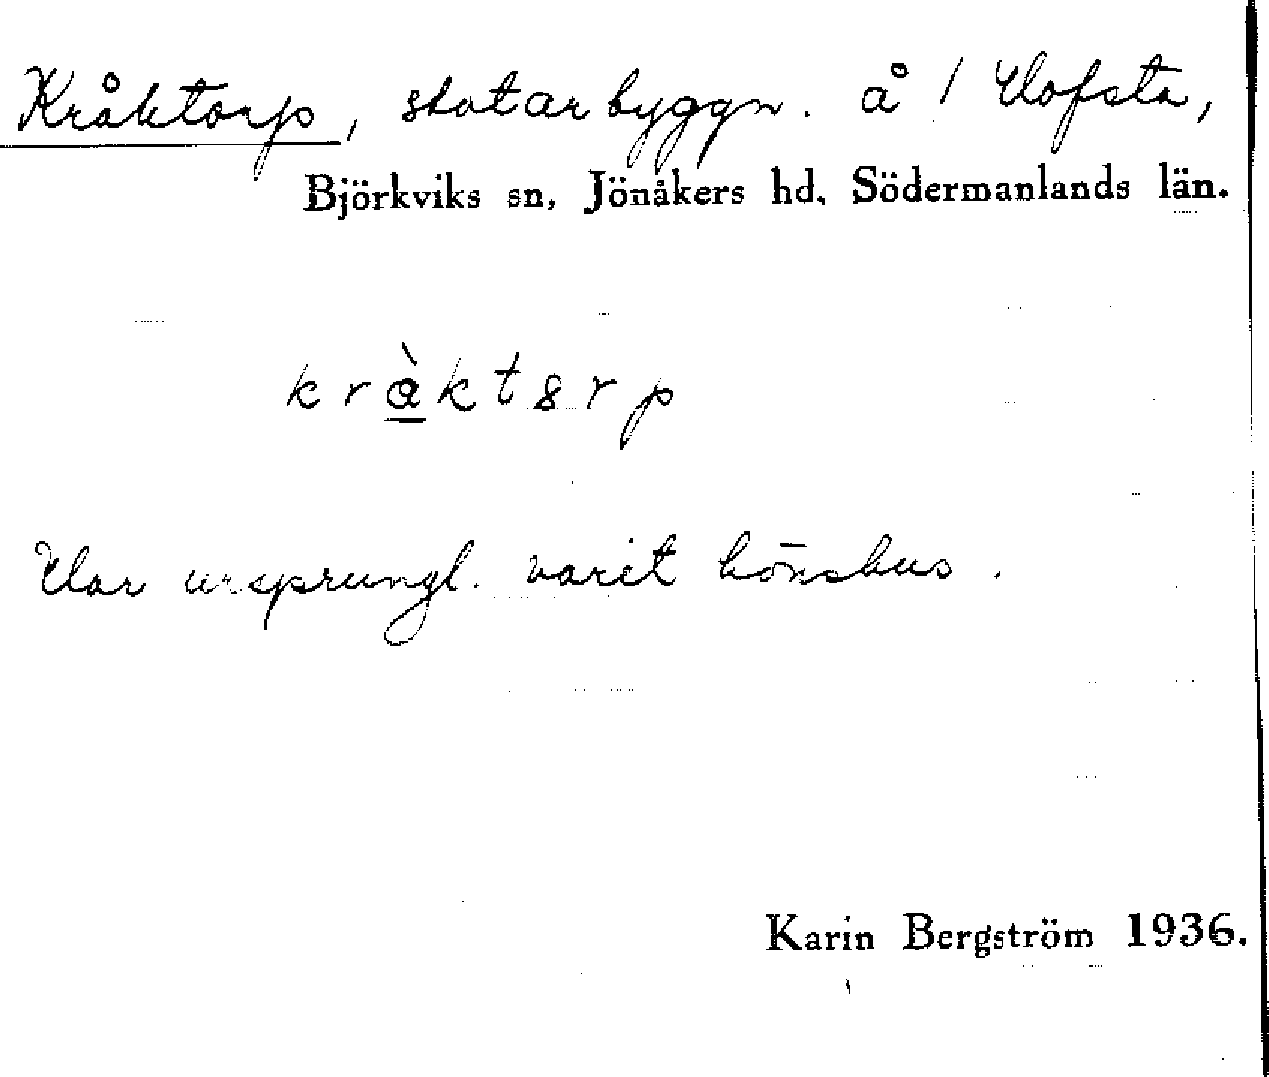 Kråktorp, statarbyggn. å / Hofsta,
Björkviks sn, Jönåkers hd, Södermanlands län.
kràkt8rp
Har ursprungl. varit hönshus.
Karin Bergström 1936.